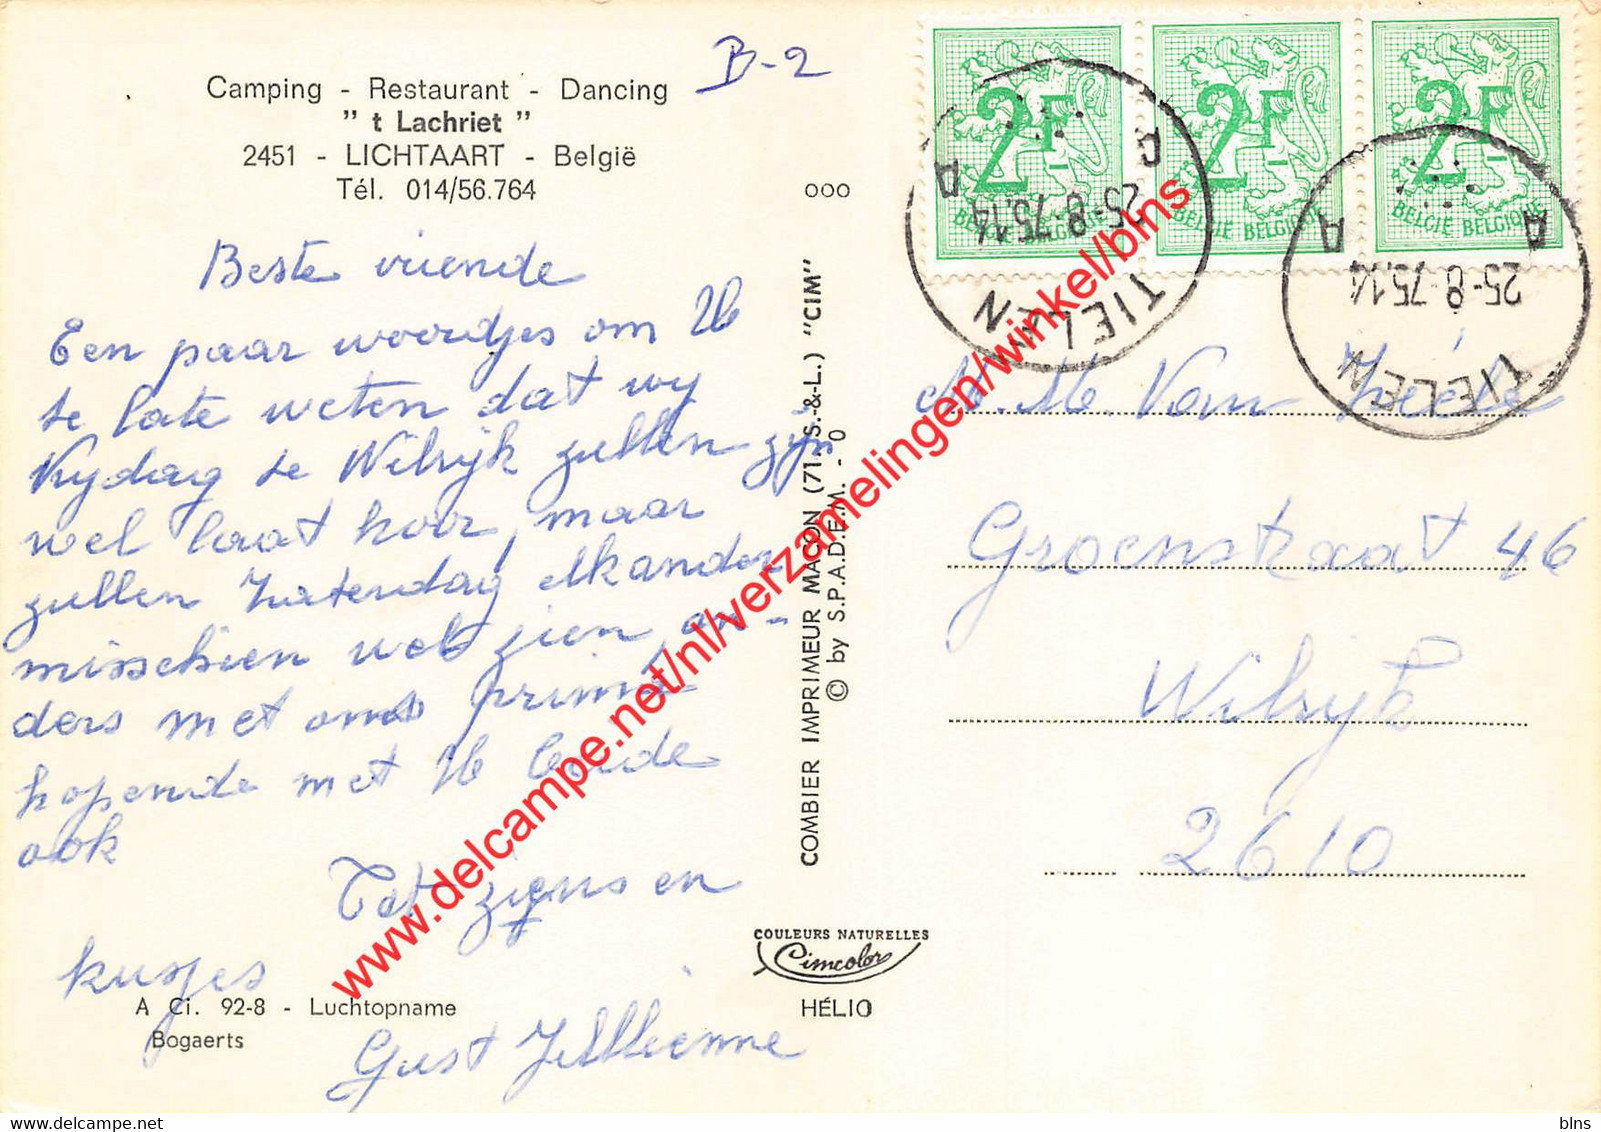 B-2
Camping - Restaurant - Dancing
" t Lachriet "
2451 - LICHTAART - België
Tél. 014/56.764
Beste vriende
Een paar woordjes om U
te late weten dat wy
Vrydag te Wilryk zullen zyn
wel laat hoor, maar
zullen Zaterdag elkander
misschien wel zien, an-
ders met ons
hopende met U beide
ook
Tot ziens en
kusjes
Gust
A Ci. 92-8 - Luchtopname
Bogaerts
ooo
COMBIER IMPRIMEUR MACON (71.-S.-&-L.) "CIM"
© by S.P.A.D.E.M. - 0
COULEURS NATURELLES
Cimcolor
HÉLIO
2F
BELGIE BELGIQUE
2F
BELGIE BELGIQUE
2F
BELGIE BELGIQUE
TIELEN
25-8-75.14
TIELEN
25-8-75.14
M. M. Van
Groenstraat 46
Wilryk
2610
www.delcampe.net/nl/verzamelingen/winkel/blns
blns